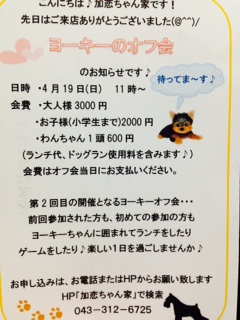 こんにちは♪加恋ちゃん家です！
先日はご来店ありがとうございました(@^^)/
ヨーキーのオフ会
のお知らせです♪
待ってま～す♪
日時 ・4月19日(日) 11時～
会費 ・大人様3000円
・お子様(小学生まで)2000円
・わんちゃん1頭600円
(ランチ代、ドッグラン使用料を含みます♪)
会費はオフ会当日にお支払いください。
第2回目の開催となるヨーキーオフ会・・・
前回参加された方も、初めての参加の方も
ヨーキーちゃんに囲まれてランチをしたり
ゲームをしたり♪楽しい1日を過ごしませんか♪
お申し込みは、お電話またはHPからお願い致します
HP「加恋ちゃん家」で検索
043-312-6725